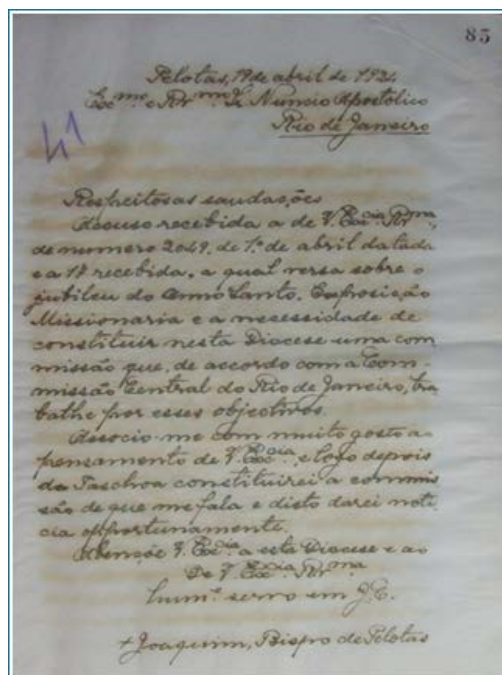 85
Pelotas, 19 de abril de 1924.
Exc.mo e Rv.mo Sr. Nuncio Apostolico
Rio de Janeiro
41
Respeitosas saudações
Accuso recebida a de V. Exc.cia Rv.ma,
de numero 2049, de 1º de abril datada
e a 18 recebida, a qual versa sobre o
jubileu do Anno Santo, Exposição
Missionaria e a necessidade de
constituir nesta Diocese uma com
missão que, de accordo com a Com-
missão Central do Rio de Janeiro, tra
balhe por esses objectivos.
Associo-me com muito gosto ao
pensamento de V. Exc.cia, e logo depois
da Paschoa constituirei a commis
são de que me fala e disto darei noti
cia opportunamente.
Abençoe V. Exc.cia a esta Diocese e ao
De V. Exc.cia Rv.ma
hum.e servo em J.C.
+ Joaquim, Bispo de Pelotas